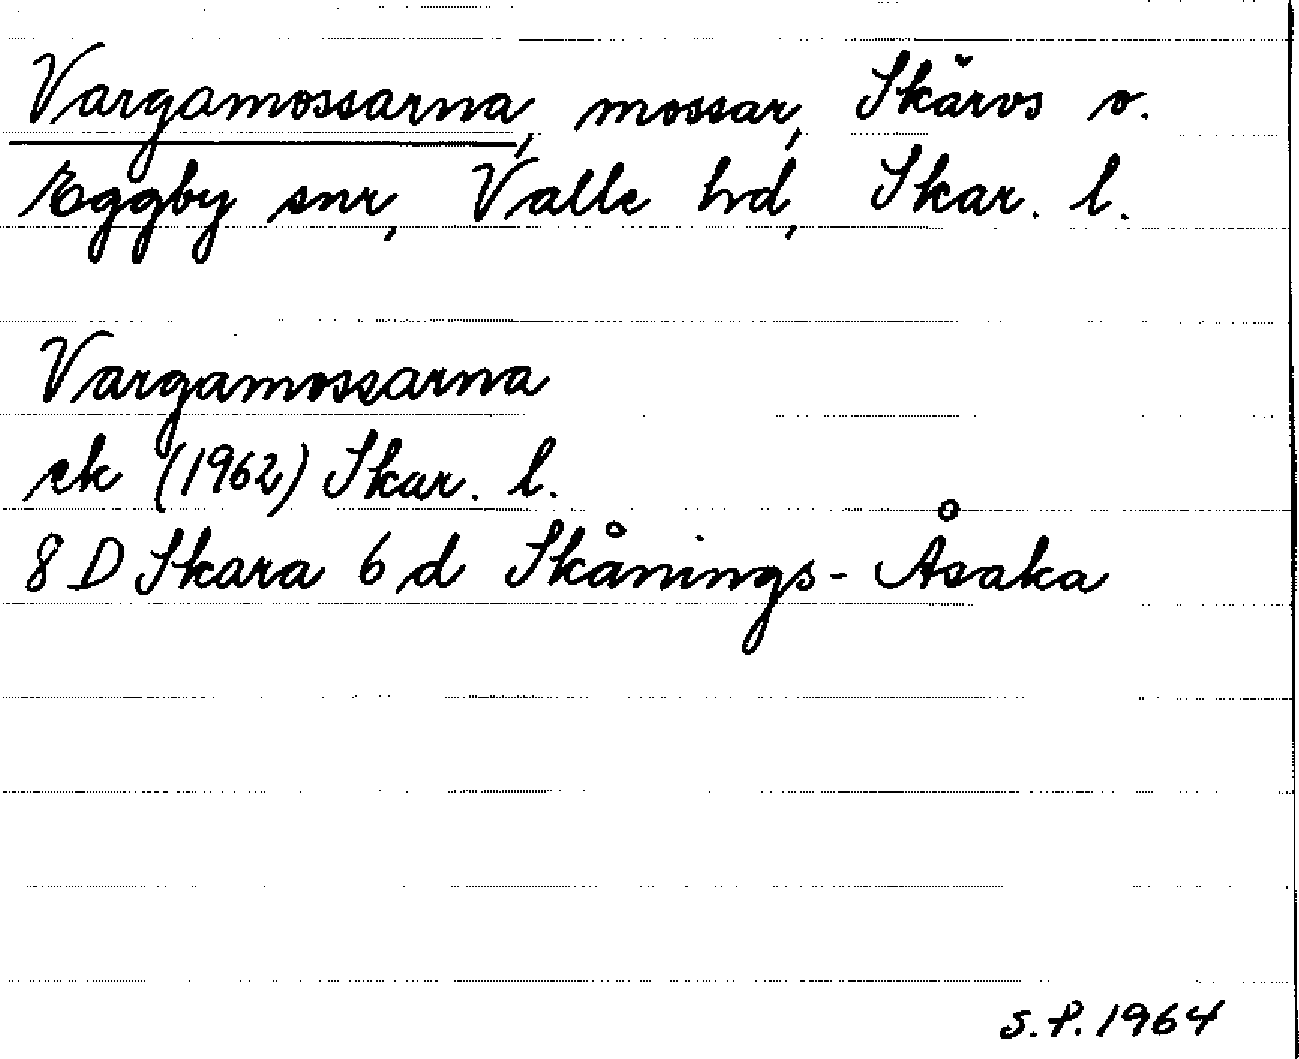 Vargamossarna, mossar, Skärvs o.
Eggby snr, Valle hd, Skar. l.
Vargamossarna
ek (1962) Skar. l.
8 D Skara 6 d Skånings-Åsaka
S.P. 1964